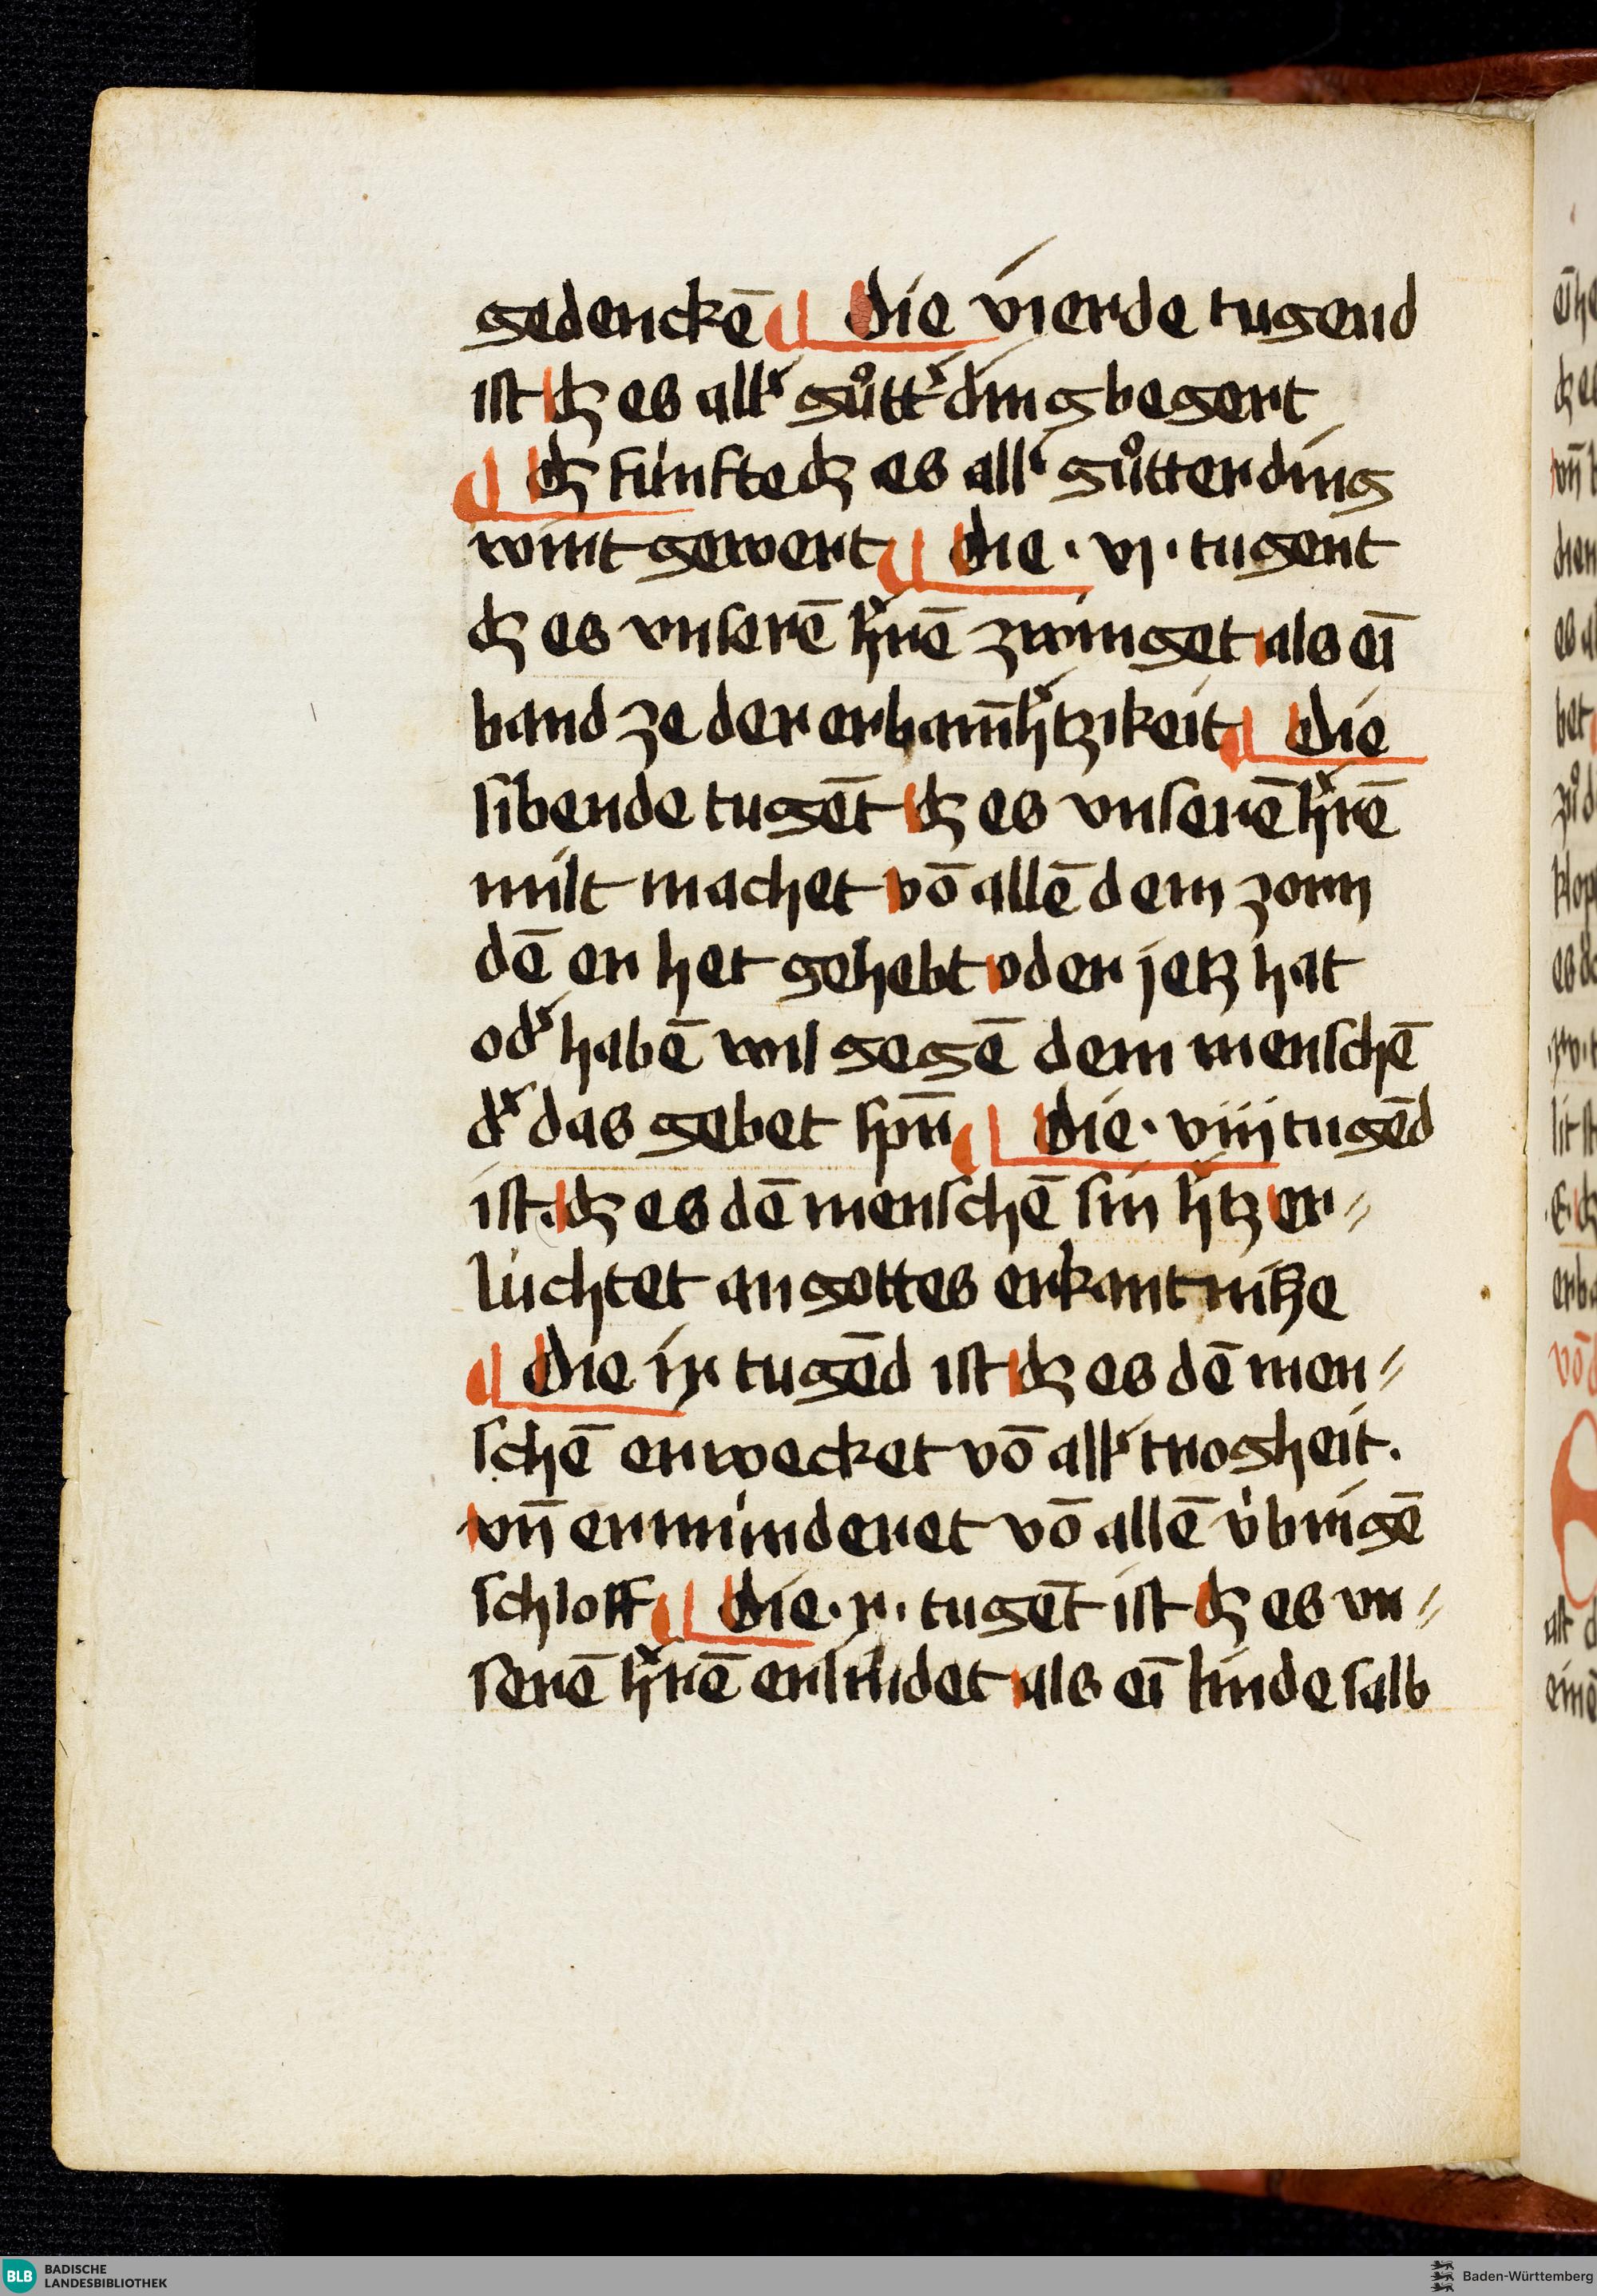 gedenckē ¶ die vierde tugend
ist dz es allʼ gůttʼ ding begert
¶ dz fúnfte dz es allʼ gůtter ding
wirt gewert ¶ die · vj · tugent
dz es vnserē hʼrē zwinget als eī
band ze der erbarm̄hʼtzikeit ¶ die
sibende tugēt dz es vnserē hʼrē
milt machet vō allē dem zorn
dē er het gehebt oder jetz hat
odʼ habē wil gegē dem menschē
dʼ das gebet
¶ die · viij tugēd
ist · dz es dē menschē sin hʼtz er⸗
lúchtet an gottes erkantniße
¶ die ix tugēd ist dz es dē men⸗
schē erwecket vō allʼ trogheit ·
vn̄ ermúnderet vō allē úbrigē
schloff ¶ die · x · tugēt ist dz es vn⸗
serē hʼrē
als eī linde salb
BLB BADISCHE
LANDESBIBLIOTHEK
Baden-Württemberg